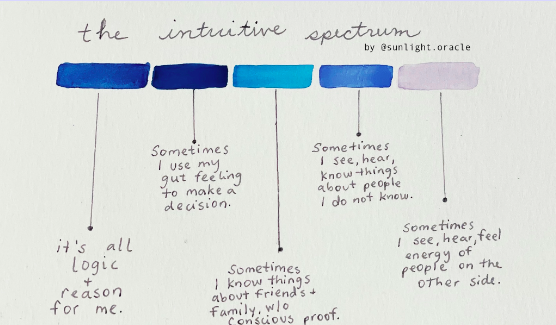 the intuitive spectrum
by @sunlight.oracle
it's all
logic
+
reason
for me.
Sometimes
I use my
gut feeling
to make a
decision.
Sometimes
I know things
about friends +
family, w/o
conscious proof.
Sometimes
I see, hear,
know things
about people
I do not know.
Sometimes
I see, hear, feel
energy of
people on the
other side.